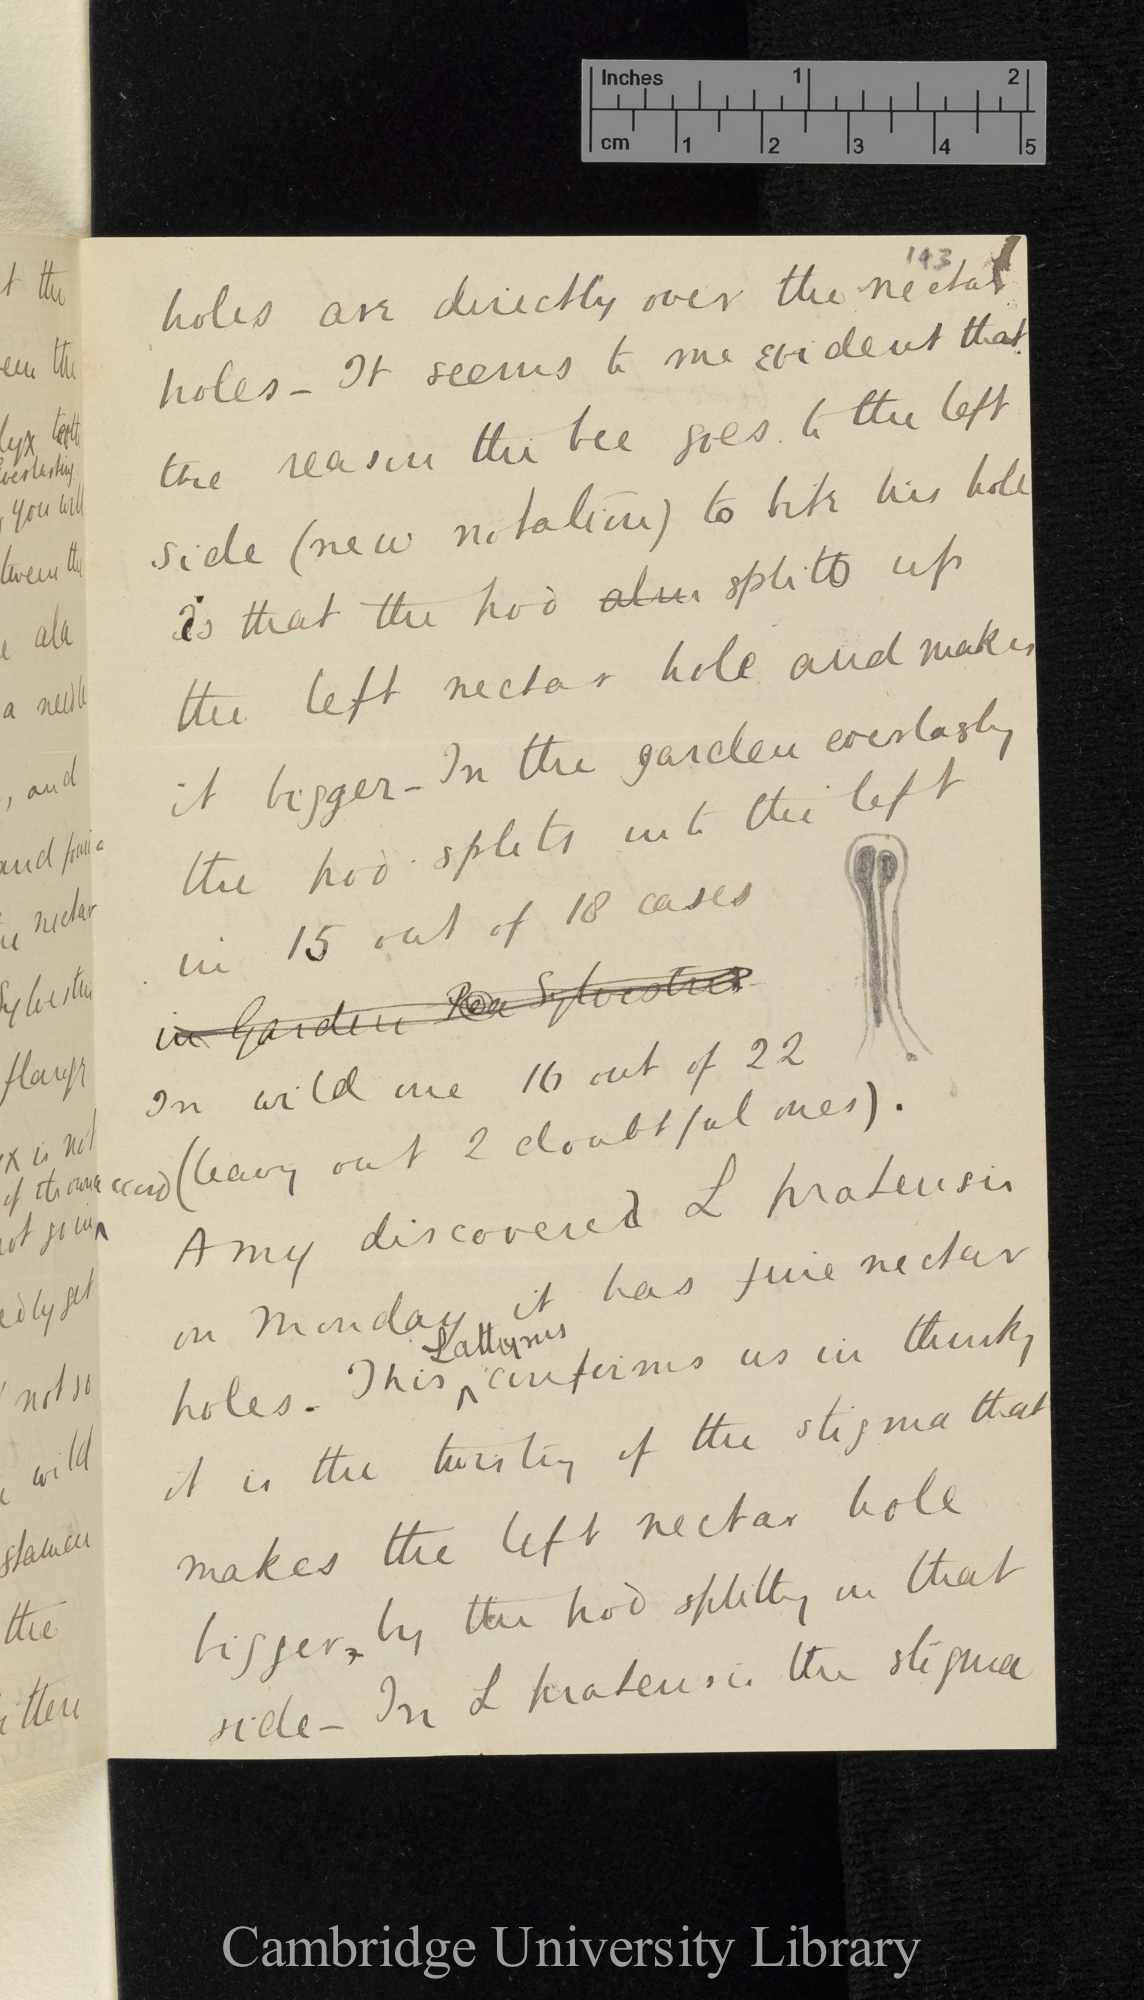 Inches 1 2
cm 1 2 3 4 5
143
holes are directly over the nectar
holes – It seems to me evident that
the reason the bee goes to the left
side (new notation) to bite his hole
is that the hod splits up
the left nectar hole and makes
it bigger – In the garden everlastg
the hod splits into the left
in 15 out of 18 cases
in Garden Pea Sylvestris
In wild one 16 out of 22
(leavg out 2 doubtful ones).
Amy discovered L pratensis
on Monday it has fine nectar
Lathyrus
holes. This ^ confirms us in thinkg
it is the twistg of the stigma that
makes the left nectar hole
bigger, by the hod splittg in that
side – In L pratensis the stigma
t the
een the
lyx tooth
Everlasting
, you will
tween the
ala
a needle
, and
and found a
nectar
Sylvestris
flange
x is not
of its own accord
not go in ^
edly get
not so
wild
stamen
the
bitten
Cambridge University Library